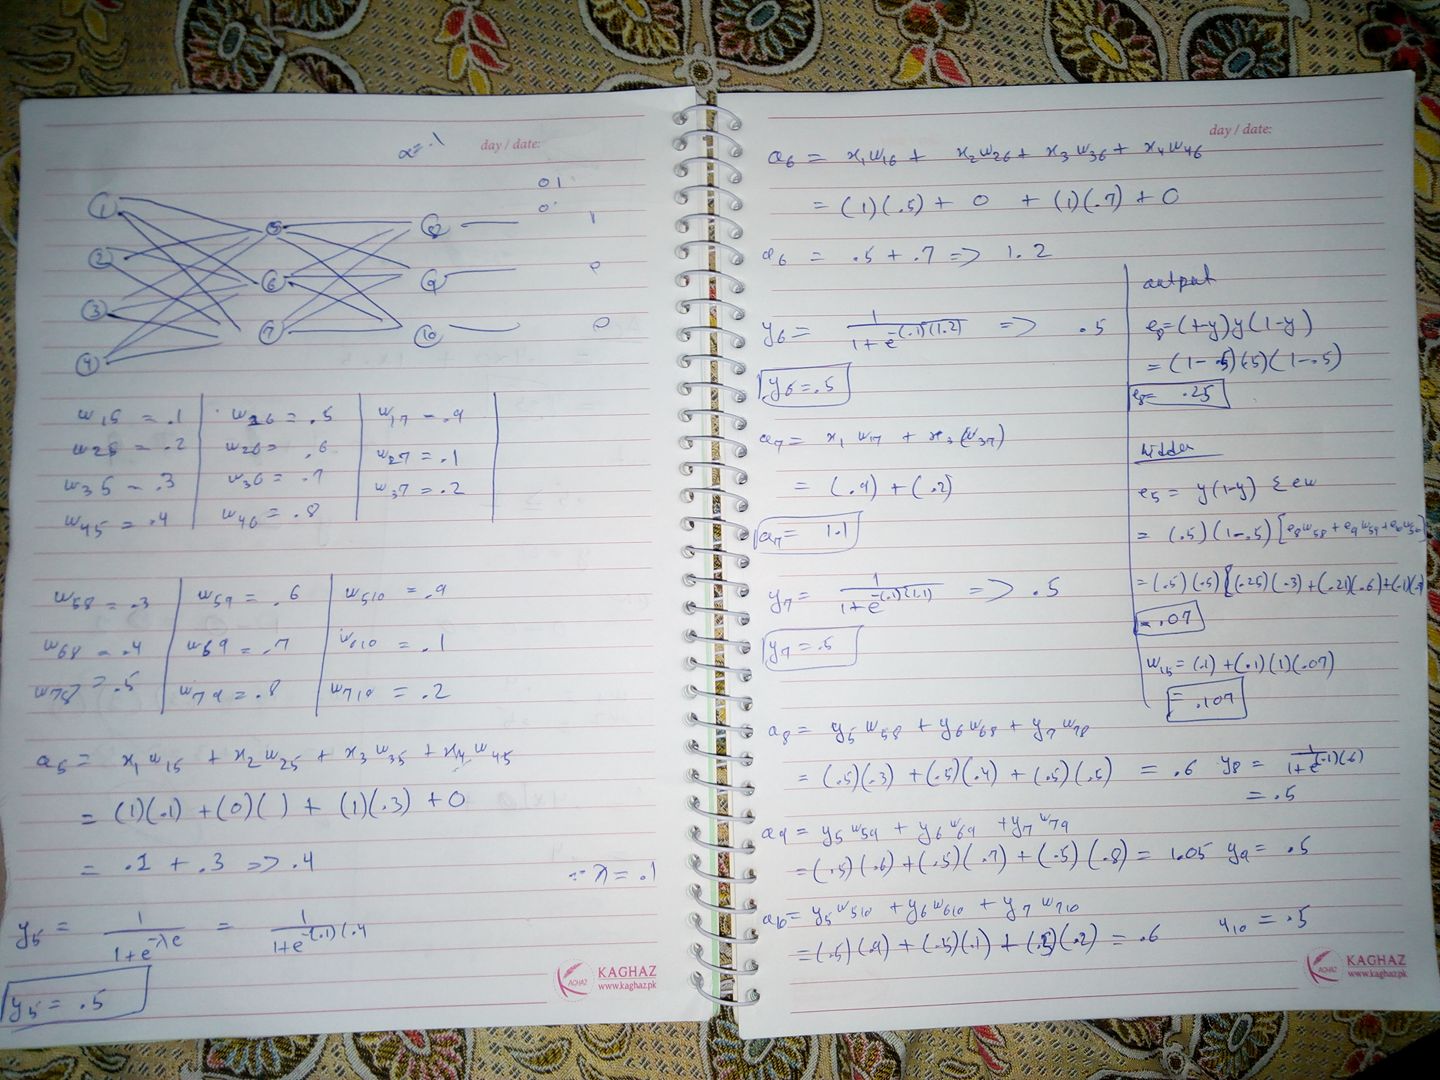 α = .1
day / date:
01
0
1
5
8
1
2
6
9
0
3
7
10
0
4
w15 = .1
w25 = .2
w35 = .3
w45 = .4
w26 = .5
w26 = .6
w36 = .7
w46 = .8
w17 = .9
w27 = .1
w37 = .2
w58 = .3
w68 = .4
w78 = .5
w59 = .6
w69 = .7
w79 = .8
w510 = .9
w610 = .1
w710 = .2
a5 = x1 w15 + x2 w25 + x3 w35 + x4 w45
= (1)(.1) + (0)( ) + (1)(.3) + 0
= .1 + .3 => .4
∵ λ = .1
y5 = 1/1+e^-λe = 1/1+e^-(.1)(.4
y5 = .5
KAGHAZ
www.kaghaz.pk
day / date:
a6 = x1w16 + x2w26 + x3w36 + x4w46
= (1)(.5) + 0 + (1)(.7) + 0
a6 = .5 + .7 => 1.2
y6 = 1/1+e^-(.1)(1.2) => .5
y6 = .5
a7 = x1 w17 + x3 (w37)
= (.9) + (.2)
a7 = 1.1
y7 = 1/1+e^-(.1)(1.1) => .5
y7 = .5
output
e8 = (t-y)y(1-y)
= (1-.5)(.5)(1-.5)
e8 = .25
hidden
e5 = y(1-y) Σew
= (.5)(1-.5)[e8w58 + e9w59 + e10w510]
= (.5)(.5)[(.25)(.3)+(.21)(.6)+(.1)(.9
= .07
w15 = (.1) + (.1)(1)(.07)
= .107
a8 = y5 w58 + y6 w68 + y7 w78
= (.5)(.3) + (.5)(.4) + (.5)(.5) = .6 y8 = 1/1+e^-(.1)(.6)
= .5
a9 = y5 w59 + y6 w69 + y7 w79
= (.5)(.6) + (.5)(.7) + (.5)(.8) = 1.05 y9 = .5
a10 = y5 w510 + y6 w610 + y7 w710
= (.5)(.9) + (.5)(.1) + (.5)(.2) = .6 y10 = .5
KAGHAZ
www.kaghaz.pk